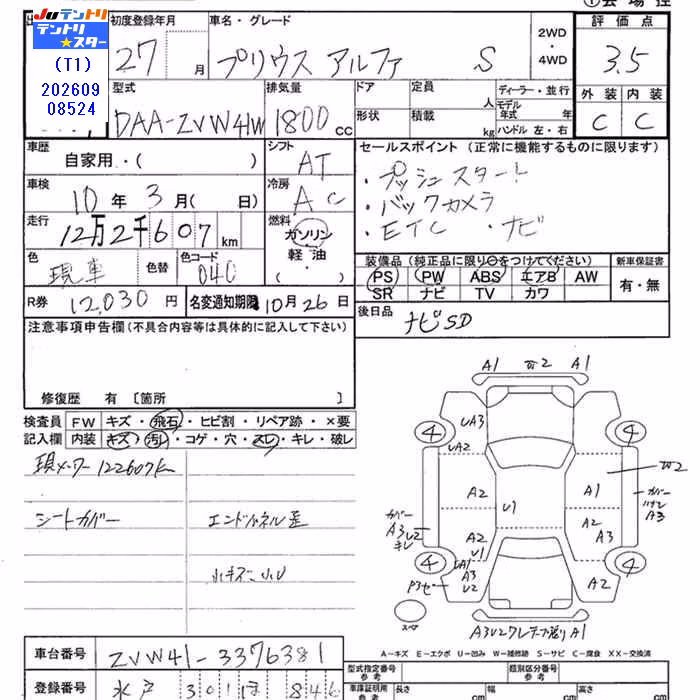 ①会場控
Juテントリ
テントリ★スター
(T1)
202609
08524
初度登録年月
27月
車名・グレード
プリウス アルファ S
2WD
・
4WD
評価点
3.5
型式
DAA-ZVW41W
排気量
1800cc
ドア
定員
人
形状
積載
kg
ディーラー・並行
モデル年式 年
ハンドル 左・右
外装 内装
C C
車歴
自家用・( )
シフト
AT
セールスポイント (正常に機能するものに限ります)
・プッシュスタート
・バックカメラ
ETC ・ナビ
車検
10年3月( 日)
冷房
AC
走行
12万2千607km
燃料
ガソリン
軽油
・( )
色
現車
色替
色コード
040
装備品 (純正品に限り○をつけてください)
PS PW ABS エアB AW
SR ナビ TV カワ
新車保証書
有・無
R券 12,030円
名変通知期限 10月26日
後日品
ナビSD
注意事項申告欄 (不具合内容等は具体的に記入して下さい)
修復歴 有 〔箇所 〕
検査員記入欄
FW キズ・飛石・ヒビ割・リペア跡・×要
内装 キズ・汚レ・コゲ・穴・スレ・キレ・破レ
現メーター 122607K
シートカバー
エンドパネル歪
小キズ、小U
A1 W2 A1
4 UA3 4
UA2
W2
A2 U1 A1
カバー
A3U2
キレ
カバー
ハガレ
A3
A2
U1
A2
A3
4 UA1
A3
U2
A2 4
スペア
A1
A-キズ E-エクボ U-凹み W-補修跡 S-サビ C-腐食 XX-交換済
車台番号 ZVW41-3376381
登録番号 水戸 301 ほ 846
型式指定番号
参考
類別区分番号
参考
車庫証明用
参考
長さ cm
幅 cm
高さ cm